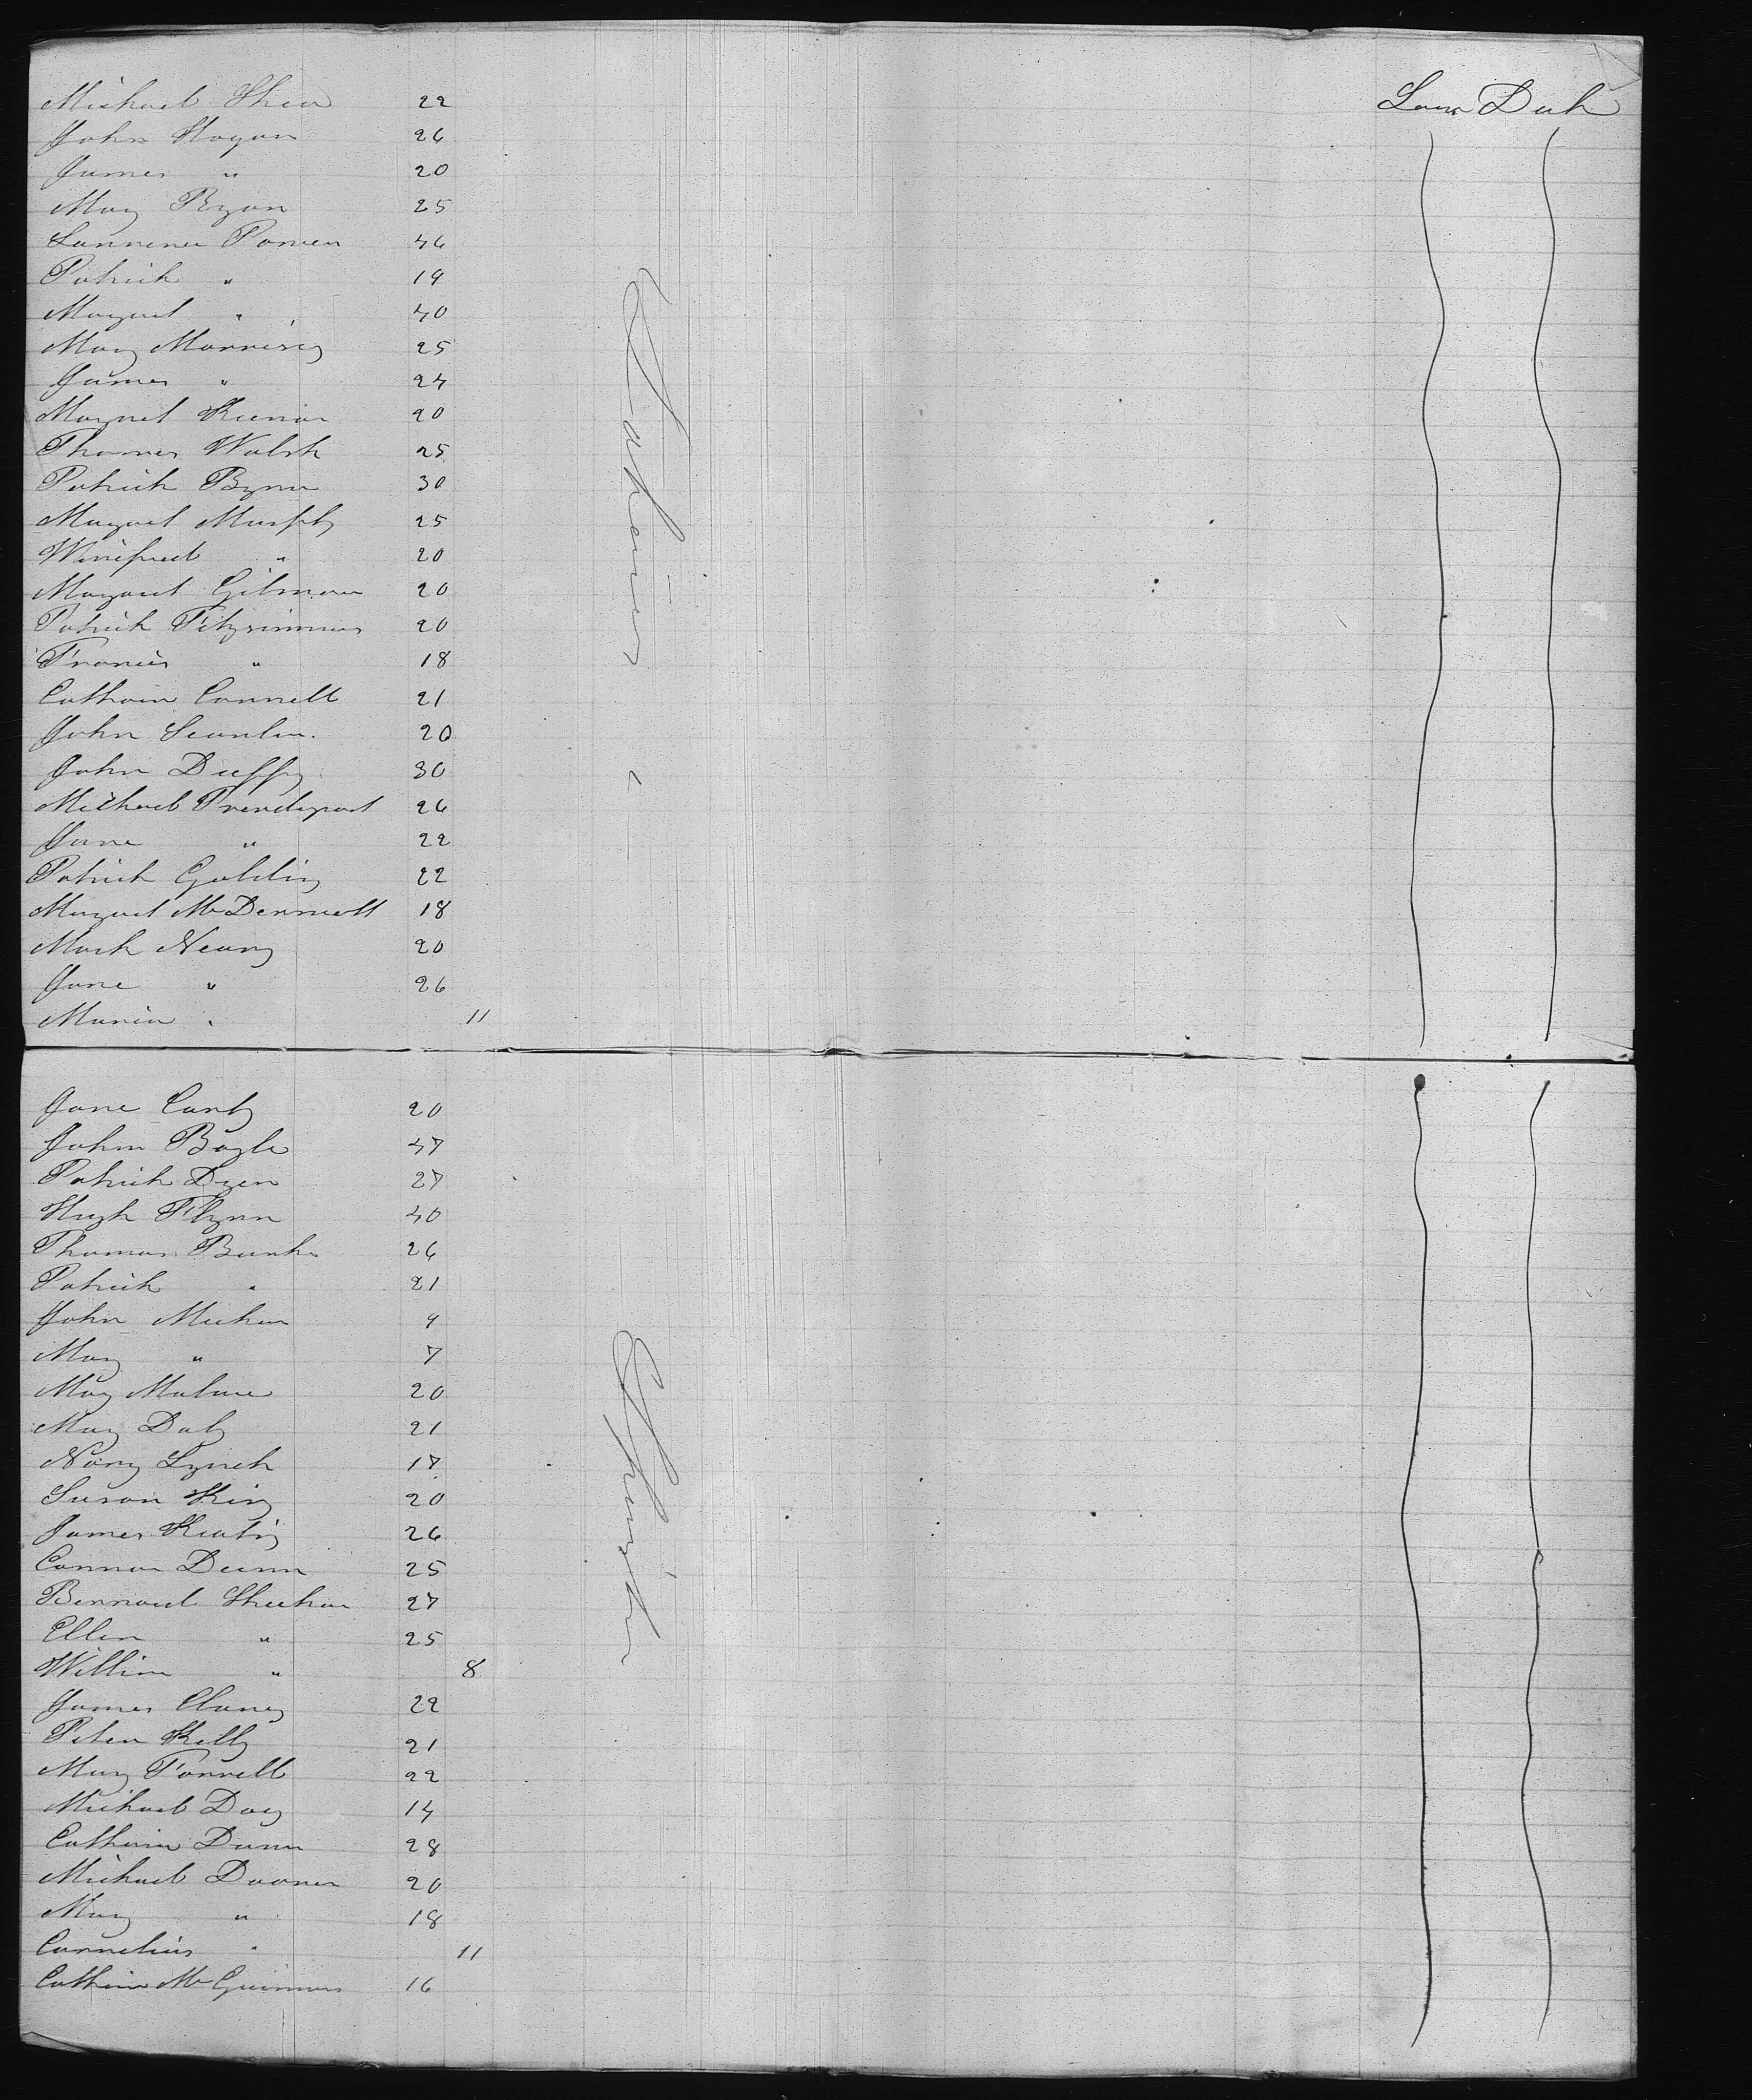 Lower Deck
Michael Shea 22
John Hogan 26
James " 20
Mary Ryan 25
Lawrence Power 46
Patrick " 19
Margaret " 40
Mary Morrisey 25
James " 24
Margaret 20
Thomas Walsh 25
Patrick Byrne 30
Margaret Murphy 25
Winifred " 20
Margaret Gilmore 20
Patrick Fitzsimmons 20
Francis " 18
Catharine Connell 21
John Scanlan 20
John Duffy 30
Michael Prendergast 26
Jane " 22
Patrick Golding 22
Margaret McDermott 18
Mark Neary 20
Jane " 26
Maria " 11
Laborers
Jane Carty 20
John Boyle 47
Patrick Dyer 27
Hugh Flynn 40
Thomas Burke 26
Patrick " 21
John Meehan 9
Mary " 7
Mary Malone 20
Mary Daly 21
Nancy Lynch 17
Susan King 20
James Keating 26
Connor Dunn 25
Bernard Sheehan 27
Ellen " 25
William " 8
James Clancy 22
Peter Kelly 21
Mary Farrell 22
Michael 14
Catharine Dunn 28
Michael Dooner 20
Mary " 18
Cornelius " 11
Catharine McGuinness 16
Spinster